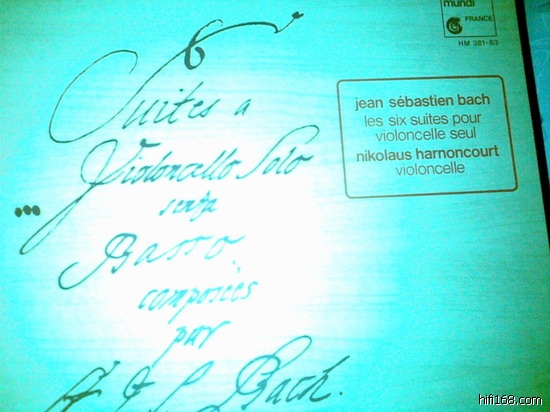 mundi
FRANCE
HM 381-83
6
Suites a
Violoncello Solo
senza
Basso
composées
par
J. S. Bach.
jean sébastien bach
les six suites pour
violoncelle seul
nikolaus harnoncourt
violoncelle
hifi168.com